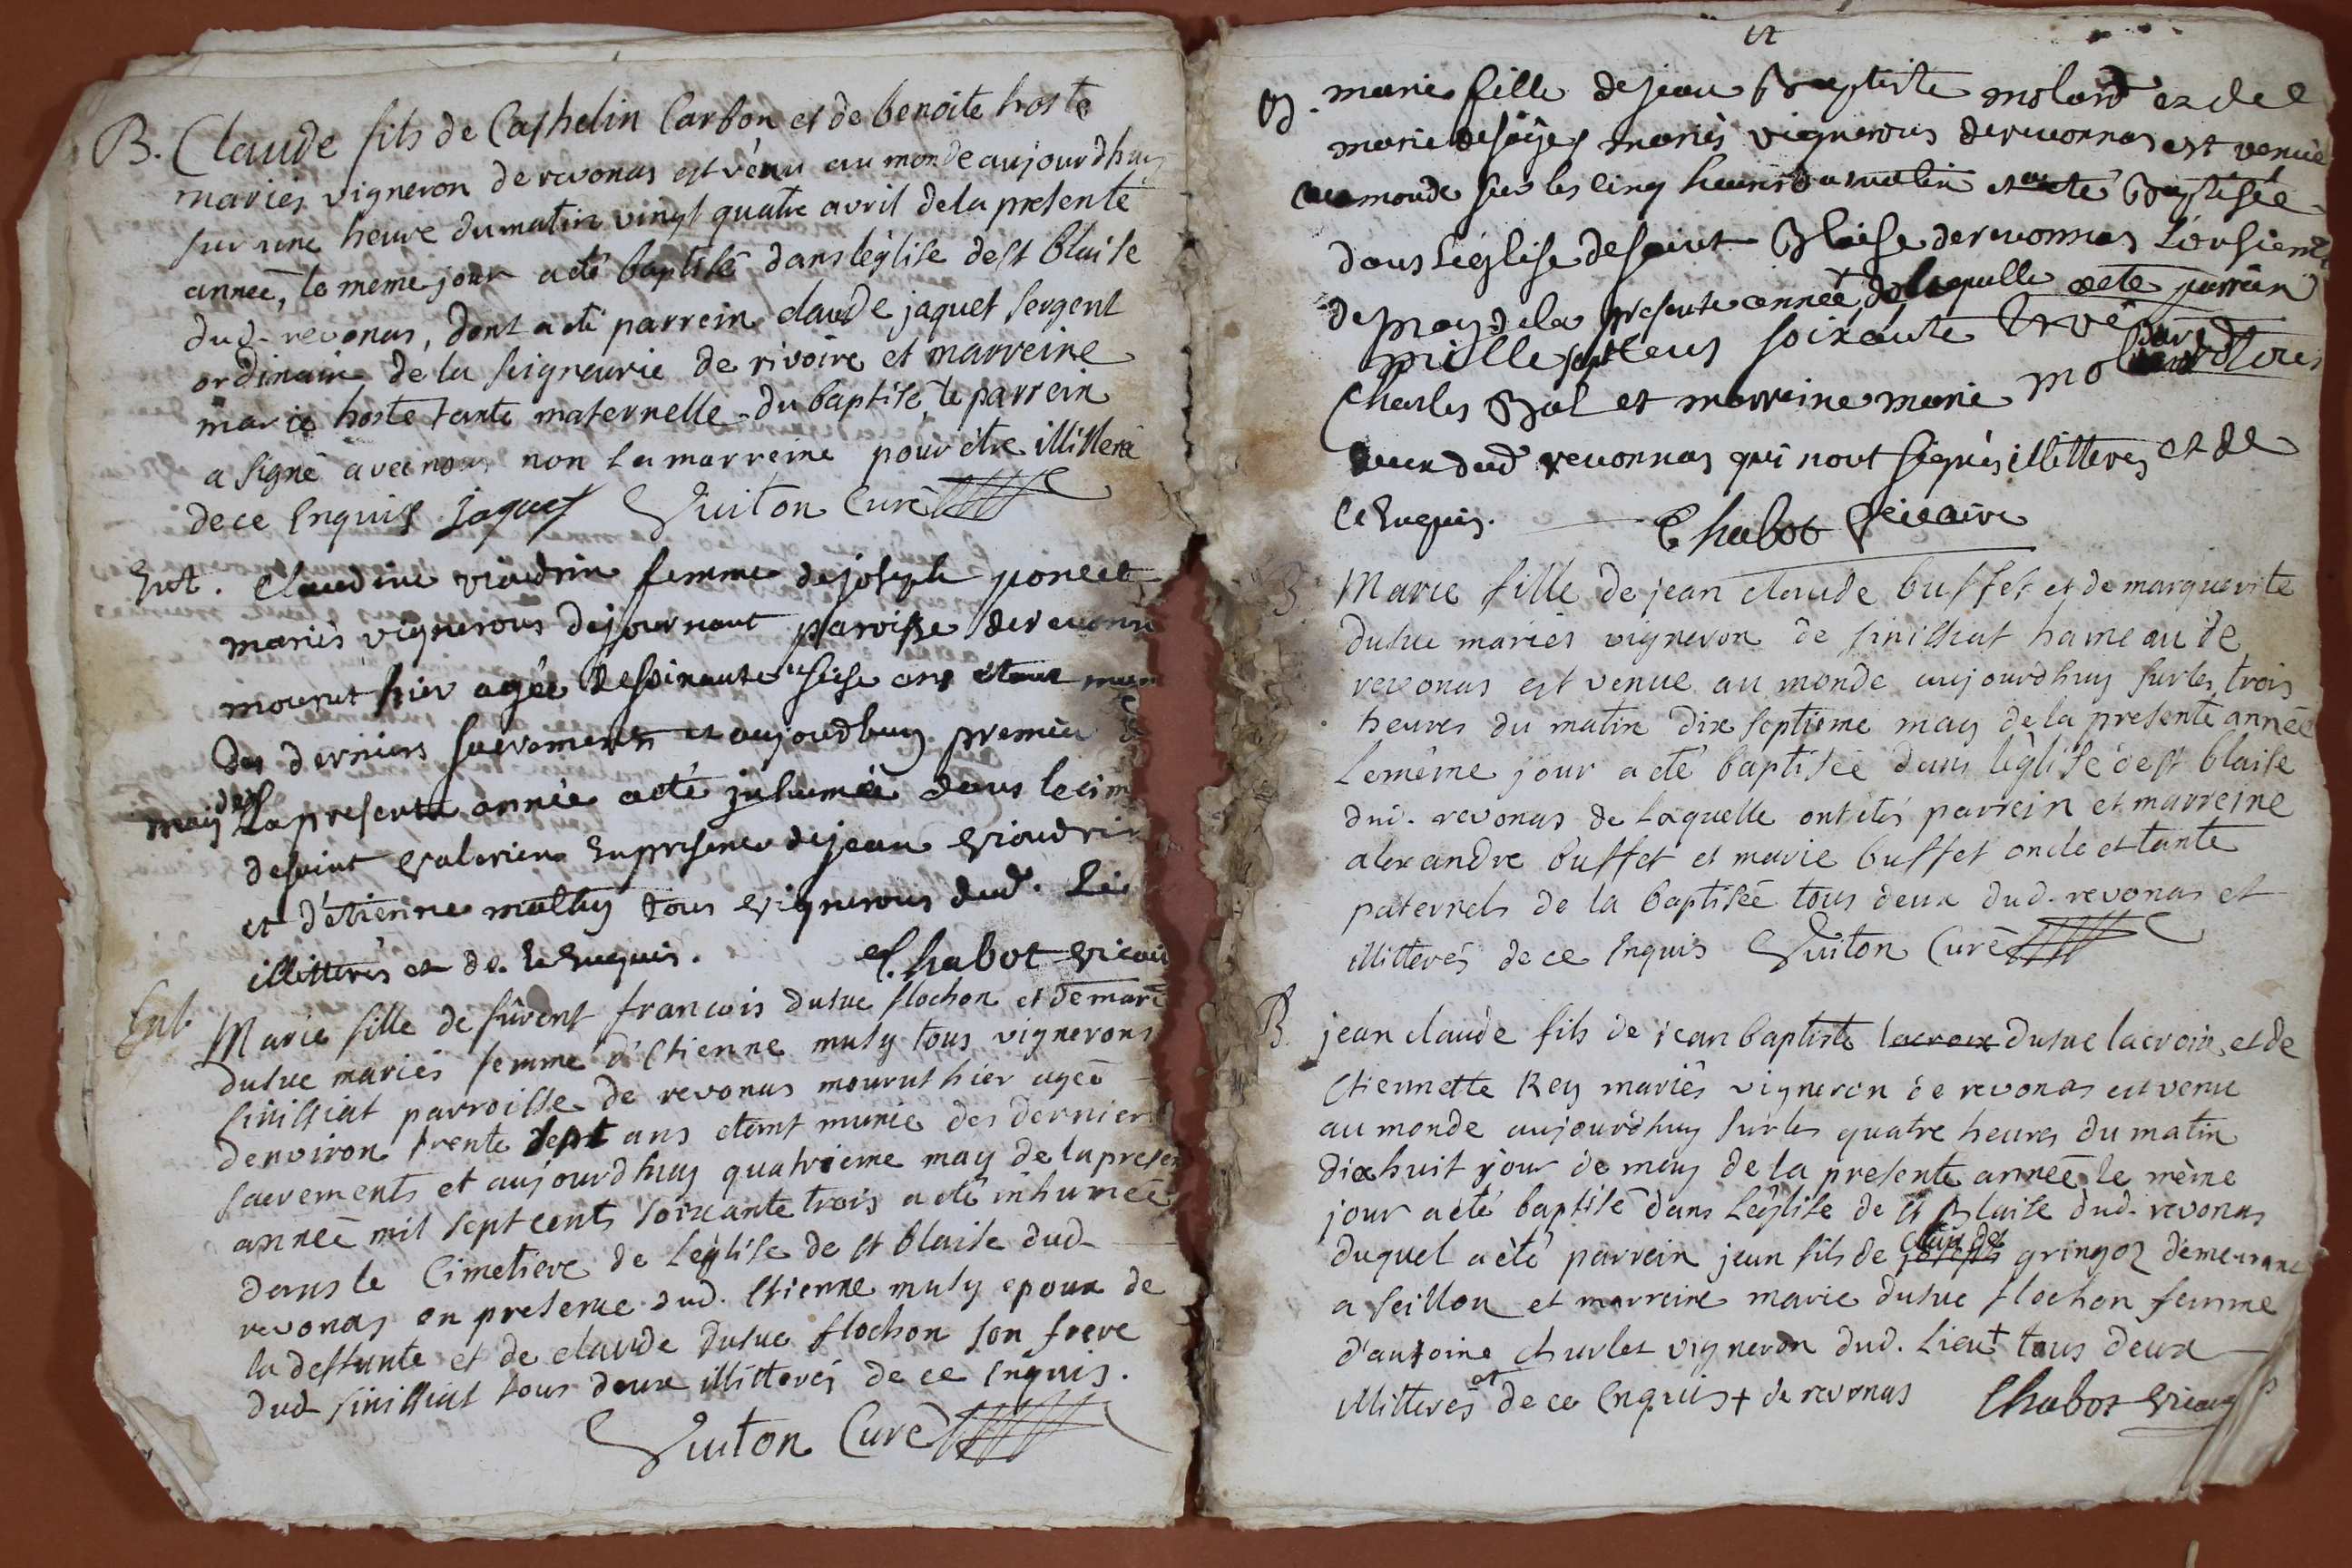 B. Claude fils de Cathelin Carbon et de benoite hoste
mariés vigneron de revonas est vénu au monde aujourdhuy
sur une heure du matin vingt quatre avril de la presente
année, le meme jour a eté baptisé dans léglise de st blaise
dud. revonas, dont a eté parrein claude jaquet sergent
ordinaire de la seigneurie de rivoire et marreine
marie hoste tante maternelle du baptisé, le parrein
a signé avec nous non la marreine pour être illiteré
de ce enquis jaquet Guiton Curé
Ent. Claudine viaudrin femme de joseph poncet
mariés vignerons de journant paroisse de revonn
mourut hier agée de soixante seise ans étant mun
des derniers sacrements et aujourdhuy premier
may de la presente année a eté inhumée dans le cim
de saint valerien en presence de jean viaudrin
et d'étienne mathy tous vignerons dud. lie
illitterés et de ce enquis. Chabot vicai
Ent Marie fille de fûrent francois dusuc flochon et de marie
dusuc mariés femme d'Etienne muty tous vignerons
sinissiat parroisse de revonas mourut hier agée
denviron trente sept ans etant munie des derniers
sacrements et aujourdhuy quatrieme may de la presen
année mil sept cents soixante trois a eté inhumée
dans le Cimetiere de léglise de st blaise dud.
revonas en presence dud. Etienne muty epoux de
la deffunte et de claude dusuc flochon son frere
dud sinissiat tous deux illitterés de ce enquis.
Guiton Curé
B. marie fille de jean Baptiste molard et de
marie desaÿes mariés vignerons de revonnas est venuë
au monde sur les cinq heures du matin et a eté Baptisée
dans l'église de saint Blaise de revonnas l'onsieme
de may de la presente année de laquelle a eté parrein
mille sept cens soixante trois
Charles Bal et marreine marie molard tous
deux dud revonnas qui n'ont signés illitteres et de
ce Enquis. Chabot vicaire
B Marie fille de jean claude buffet et de marguerite
dusuc mariés vigneron de sinissiat hameau de
revonas est venue au monde aujourdhuy sur les trois
heures du matin dix septieme may de la presente année
Le même jour a eté baptisée dans léglise de st blaise
dud. revonas de laquelle ont etés parrein et marreine
alexandre buffet et marie buffet oncle et tante
paternels de la baptisée tous deux dud. revonas et
illitterés de ce enquis Guiton Curé
B. jean claude fils de jean baptiste lacroix dusuc lacroix, et de
Etiennette Rey mariés vigneron de revonas est venu
au monde aujourdhuy sur les quatre heures du matin
dix huit jour de may de la presente année le même
jour a eté baptisé dans Léglise de st Blaise dud. revonas
duquel a été parrein jean fils de joseph claude gringoz demeurant
a seillon et marreine marie dusuc flochon femme
d'antoine churlet vigneron dud. Lieu + tous deux
illitterés et de ce enquis + de revonas Chabot vicair